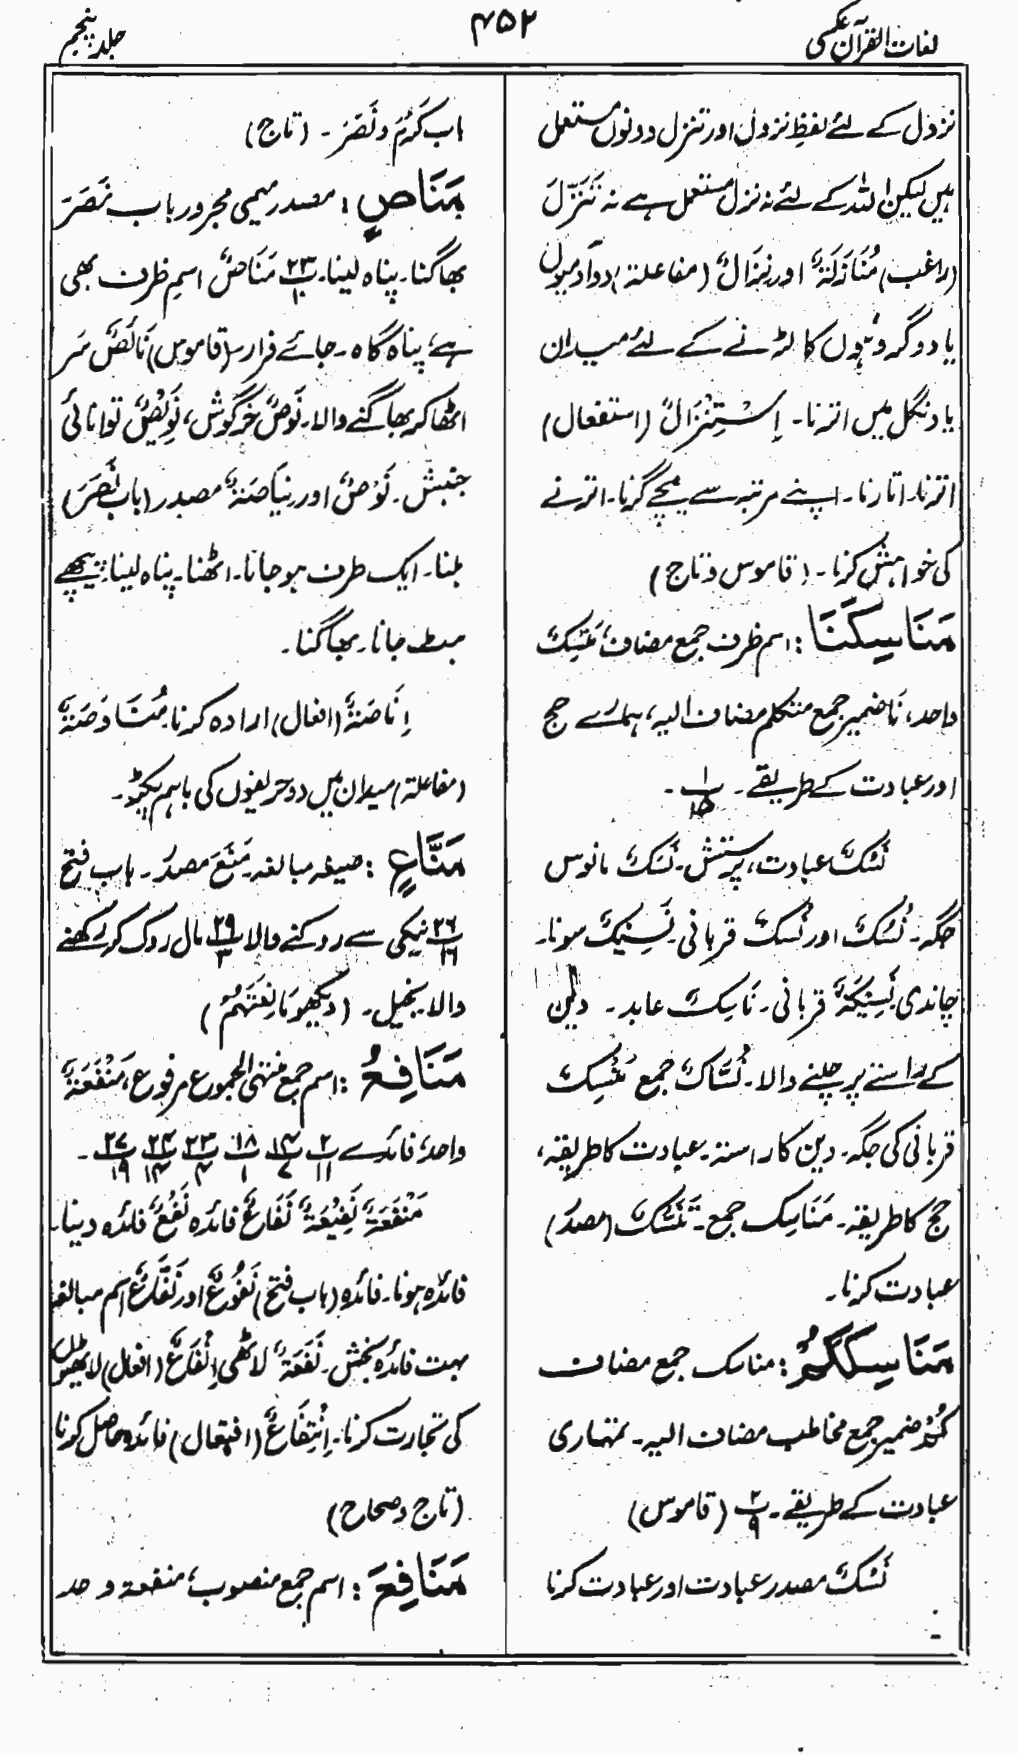 لغات القرآن عکسی
۴۵۲
جلد پنجم
نزول کے لئے لفظِ نزول اور تنزل دونوں مستعمل
ہیں لیکن اللہ کے لئے نہ نزل مستعمل ہے نہ تَنَزَّلَ
(راغب) مُنَازَلَۃٌ اور نِزَالٌ (مفاعلۃ) دو آدمیوں
یا دو گروہوں کا لڑنے کے لئے میدان
یا دنگل میں اترنا۔ اِسْتِنْزَالٌ (استفعال)
اترنا۔ اتارنا۔ اپنے مرتبہ سے نیچے گرنا۔ اترنے
کی خواہش کرنا۔ (قاموس و تاج)
مَنَاسِكَنَا: اسم ظرف جمع مضاف، مَنْسِکٌ
واحد، نَا ضمیر جمع متکلم مضاف الیہ، ہمارے حج
اور عبادت کے طریقے۔ ۱/۱۵۔
نُسْکٌ عبادت، پرستش۔ نَسْکٌ مانوس
جگہ۔ نُسُکٌ اور نُسْکٌ قربانی۔ نَسِیْکٌ سونا۔
چاندی نَسِیْکَۃٌ قربانی۔ نَاسِکٌ عابد۔ دین
کے راستے پر چلنے والا۔ نُسَّاکٌ جمع مَنْسِکٌ
قربانی کی جگہ۔ دین کا راستہ۔ عبادت کا طریقہ،
حج کا طریقہ۔ مَنَاسِکُ جمع۔ تَنَسُّکٌ (مصدر)
عبادت کرنا۔
مَنَاسِكَكُمْ: مناسک جمع مضاف
کُمْ ضمیر جمع مخاطب مضاف الیہ۔ تمہاری
عبادت کے طریقے۔ ۲/۹ (قاموس)
نُسْکٌ مصدر عبادت اور عبادت کرنا
باب کَرُمَ و نَصَرَ۔ (تاج)
مَنَاصٍ: مصدر میمی مجرور باب نَصَرَ،
بھاگنا۔ پناہ لینا۔ ۲۳/۱۰ مَنَاصٌ اسمِ ظرف بھی
ہے، پناہ گاہ۔ جائے فرار (قاموس) نَائِصٌ سَر
اٹھا کر بھاگنے والا۔ نَوْصٌ خرگوش، نَوِیْصٌ توانائی
جنبش۔ نَوْصٌ اور نِیَاصَۃٌ مصدر (باب نَصَرَ)
ہلنا۔ ایک طرف ہو جانا۔ اٹھنا۔ پناہ لینا۔ پیچھے
ہٹ جانا۔ بھاگنا۔
اِنَاصَۃٌ (افعال) ارادہ کرنا مُنَاوَصَۃٌ
(مفاعلۃ) میدان میں دو حریفوں کی باہم پکڑ۔
مَنَّاعٍ: صیغہ مبالغہ۔ مَنْعَ مصدر۔ باب فتح
۲۶/۱۶ نیکی سے روکنے والا ۲۹/۳ مال روک کر رکھنے
والا بخیل۔ (دیکھو مَانِعَتُہُمْ)
مَنَافِعُ: اسم جمع منتہی الجموع مرفوع، مَنْفَعَۃٌ
واحد، فائدے ۲/۱۱ ۱۴/۷ ۱۸/۱ ۲۳/۴ ۲۴/۱۴ ۲۷/۱۹۔
مَنْفَعَۃٌ نَفِیْعَۃٌ نَفَاعٌ فائدہ نَفْعٌ فائدہ دینا۔
فائدہ ہونا۔ فائدہ (باب فتح) نَفُوْعٌ اور نَفَّاعٌ اسم مبالغہ
بہت فائدہ بخش۔ نَفْعَۃٌ لاٹھی اِنْفَاعٌ (افعال) لاٹھیوں
کی تجارت کرنا۔ اِنْتِفَاعٌ (افتعال) فائدہ حاصل کرنا
(تاج و صحاح)
مَنَافِعَ: اسم جمع منصوب، منفعۃ واحد